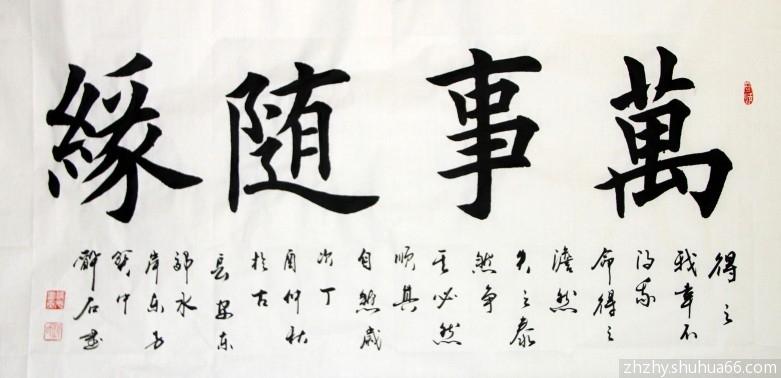 萬事随緣
得之
我幸不
得我
命得之
澹然
失之泰
然争
其必然
順其
自然歲
次丁
酉仲秋
於古
長安东
郊水
岸东方
中
石
zhzhy.shuhua66.com